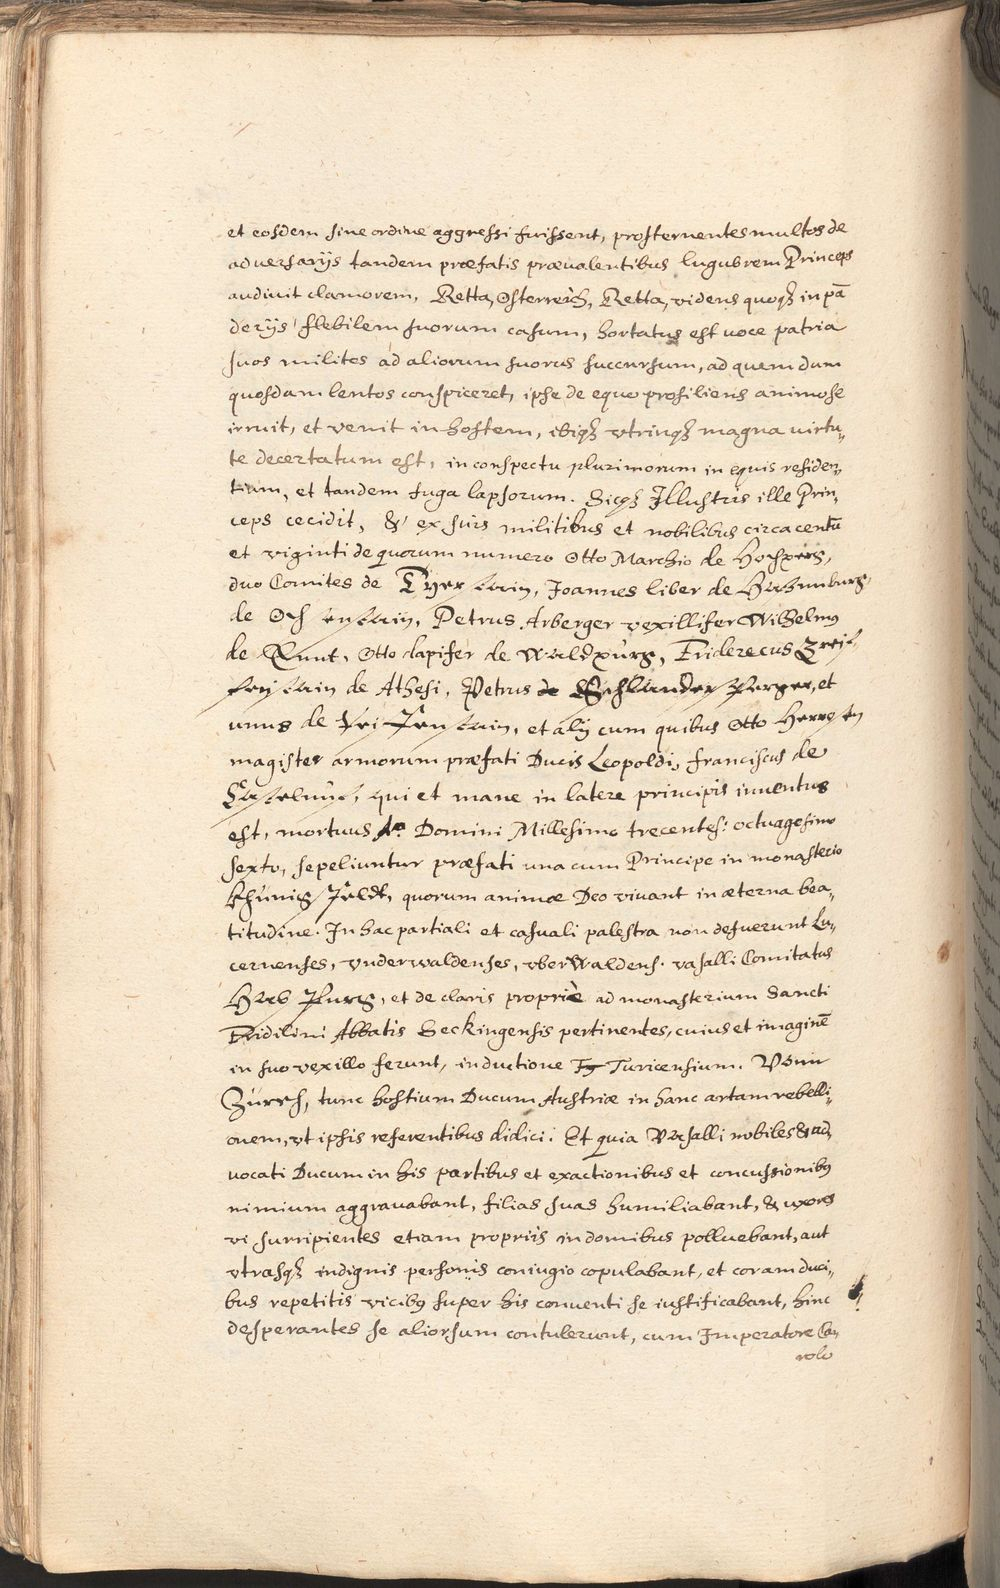 et eosdem sine ordine aggressi fuissent, prosternentes multos de
adversarijs tandem præfatis prævalentibus lugubrem Princeps
audivit clamorem, Retta, Österreich, Retta, videns quoqꝫ in pā
derijs flebilem suorum casum, hortatus est voce patria
suos milites ad aliorum suorus succursum, ad quem dum
quosdam lentos conspiceret, ipse de equo prosiliens animose
irruit, et venit in hostem, ibiqꝫ vtrinqꝫ magna virtu„
te decertatum est, in conspectu plurimorum in equis residen„
tium, et tandem fuga lapsorum. Sicqꝫ Illustris ille Prin„
ceps cecidit, & ex suis militibus et nobilibus circa centū
et viginti de quorum numero Otto Marchio de Hochperg,
duo Comites de Tyerstain, Joannes liber de Hasenburg,
de Ochsenstain, Petrus Arberger vexillifer Wilhelmus
de Ennt, Otto dapifer de Waldpürg, Friderecus Greif„
fenstain de Athesi, Petrus de Schlandersperger, et
unus de Weissenstain, et alij cum quibus Otto Herre en
magister armorum præfati Ducis Leopoldi, franciscus de
Castelnüt, qui et mane in latere principis inventus
est, mortuus Aº Domini Millesimo trecentes: octuagesimo
sexto, sepeliuntur præfati una cum Principe in monasterio
Khünigsfeldt, quorum animæ Deo vivant in æterna bea„
titudine. In hac partiali et casuali palestra non defuerunt Lu„
cernenses, vnderwaldenses, vberwaldens. vasalli Comitatus
Habspurg, et de claris propriè ad monasterium Sancti
Fridilini Abbatis Seckingensis pertinentes, cuius et imaginē
in suo vexillo ferunt, inductione Turicensium. Vonn
Zürch, tunc hostium Ducum Austriæ in hanc artam rebelli„
onem, vt ipsis referentibus didici. Et quia Vasalli nobiles & ad„
vocati Ducum in his partibus et exactionibus et concussionibus
nimium aggravabant, filias suas humiliabant, & uxores
vi surripientes etiam proprijs in domibus polluebant, aut
vtrasqꝫ indignis personis coniugio copulabant, et coram duci„
bus repetitis vicibus super his conventi se iustificabant, hinc
desperantes se aliorsum contulerunt, cum Imperatore Ca„
rolo